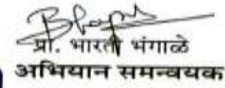 प्रा. भारती भंगाळे
अभियान समन्वयक